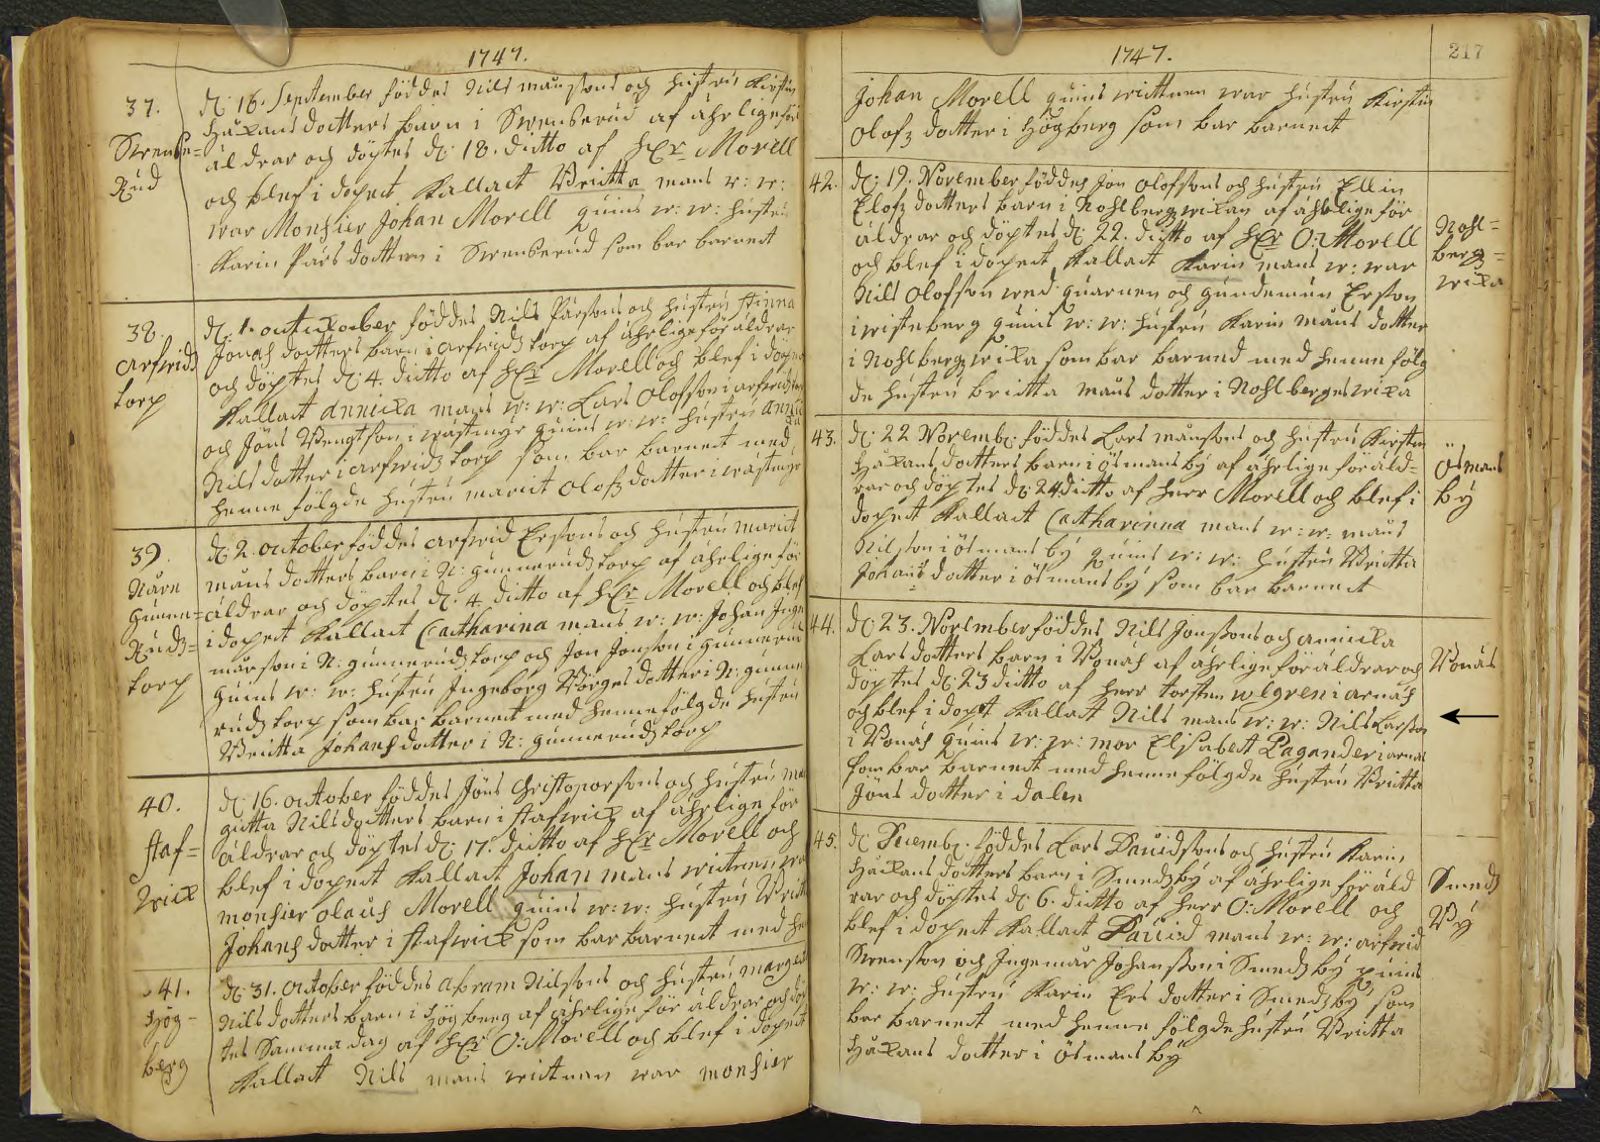 1747.
37.
Swense=
Rud
d: 16. September föddes Nils månsons och hustru Kirstin
Håkans dotters barn i Swenserud af ährlige för
äldrar och döptes d: 18. ditto af Hr Morell
och blef i dopet Kallat Britta mans w: w:
war Monsier Johan Morell quins w: w: hustru
Karin Pärs dotter i Swenserud som bar barnet
38
arfwids
torp
d: 1. october föddes Nils Pärsons och hustru Stinna
Jonas dotters barn i arfwids torp af ährlige för äldrar
och döptes d: 4. ditto af Hr Morell och blef i dopet
Kallat Annicka mans w: w: Lars Olofson i arfwids
och Jöns Bengtson i wästmyr quins w: w: hustru
Nils dotter i arfwids torp som bar barnet med
henne fölgde hustru marit Olofs dotter i wästmyr
39.
Närn
Gunne=
Ruds=
torp
d: 2. october föddes arfwid Ersons och hustru marit
måns dotters barn i N: gunneruds torp af ahrlige för
äldrar och döptes d: 4. ditto af Hr Morell och blef
i dopet Kallat Catharina mans w: w: Johan Inge
marson i N: gunneruds torp och Jon Jonson i gunnerud
quins w: w: hustru Ingeborg Börges dotter i N: gunne
ruds torp som bar barnet med henne fölgde hustru
Britta Johans dotter i N: gunneruds torp
40.
staf=
wick
d: 16. october föddes Jöns Christoporsons och hustru
gitta Nilsdotters barn i stafwick af ährlige för
äldrar och döptes d: 17. ditto af Hr Morell och
blef i dopet Kallat Johan mans witnen wa
monsier olaus Morell quins w: w: hustru Britta
Johans dotter i stafwick som bar barnet med he
41.
Hög-
berg
d: 31. october föddes Abram Nilsons och hustru marget
Nils dotters barn i Högberg af ährlige för äldrar och döp
tes samma dag af Hr O: Morell och blef i dopet
Kallat Nils mans witnen war monsier
1747.
217
Johan Morell quins wittnen war hustru Kirstin
Olofs dotter i Högberg som bar barnet
42.
d: 19. November föddes Jon Olofsons och hustru Ellin
Elofs dotters barn i Nohlbergswikan af ährlige för
äldrar och döptes d: 22. ditto af Hr O: Morell
och blef i dopet Kallat Karin mans w: war
Nils Olofson wed quarnen och gundemun Erson
i wisteberg quins w: w: hustru Karin måns dotter
i Nohlbergswika som bar barned med henne fölg
de hustru britta måns dotter i Nohlbergswika
Nohl=
bergs=
wika
43.
d: 22 Novemb: föddes Lars månsons och hustru Kirstin
Håkans dotters barn i ösmansby af ährlige föräld=
rar och döptes d: 24 ditto af Herr Morell och blef i
dopet Kallat Catharinna mans w: w: måns
Nilson i ösmansby quins w: w: hustru Britta
Johans dotter i ösmansby som bar barnet
ösmans
by
44.
d: 23. November föddes Nils Jonsons och annicka
Lars dotters barn i Bonäs af ährlige föräldrar och
döptes d: 23 ditto af Herr torsten wlgren i arnäs
och blef i dopet Kallat Nils mans w: w: Nils Larson
i Bonäs quins w: w: mor Elisabet Pagander i arnäs
som bar barnet med henne fölgde hustru Britta
Jöns dotter i dalen
Bonäs
45.
d: Decemb: föddes Lars Davidsons och hustru Karin
Håkans dotters barn i Smeds by af ährlige föräld
rar och döptes d: 6. ditto af Herr O: Morell och
blef i dopet Kallat David mans w: w: arfwid
Swenson och Ingemar Johanson i Smeds by quins
w: w: hustru Karin Ers dotter i Smeds by som
bar barnet med henne fölgde hustru Britta
Håkans dotter i ösmansby
Smeds
By